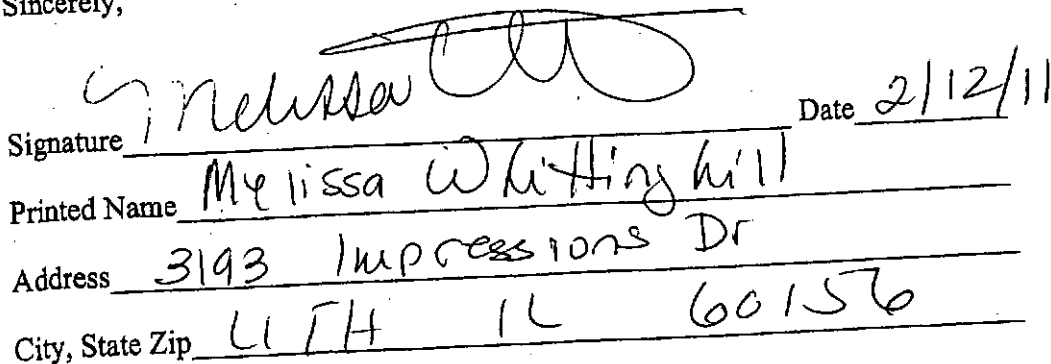 Sincerely,
Signature Melissa Date 2/12/11
Printed Name Melissa Whittinghill
Address 3193 Impressions Dr
City, State Zip LITH IL 60156